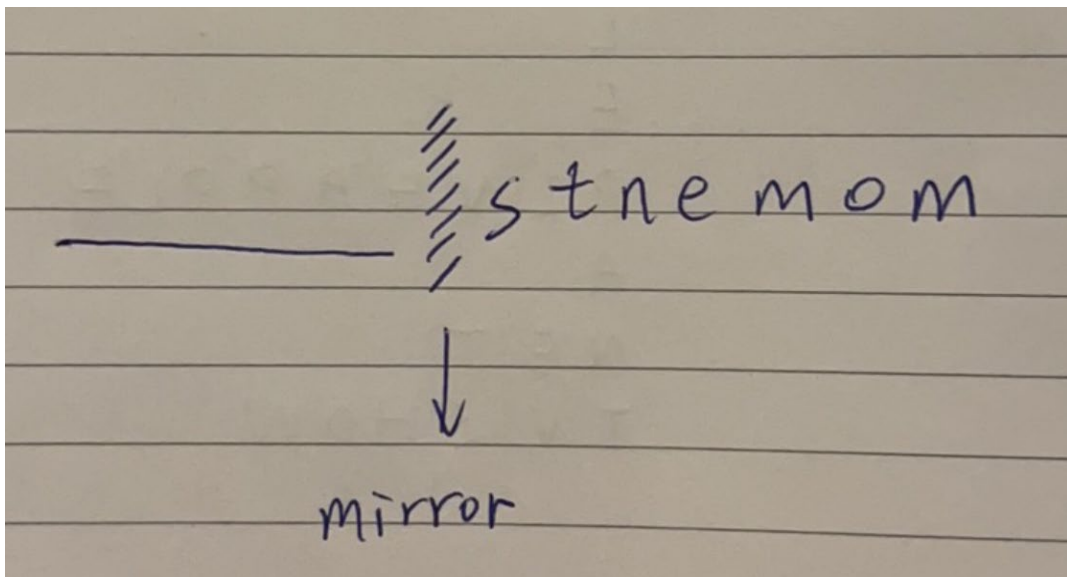 stnemom
mirror